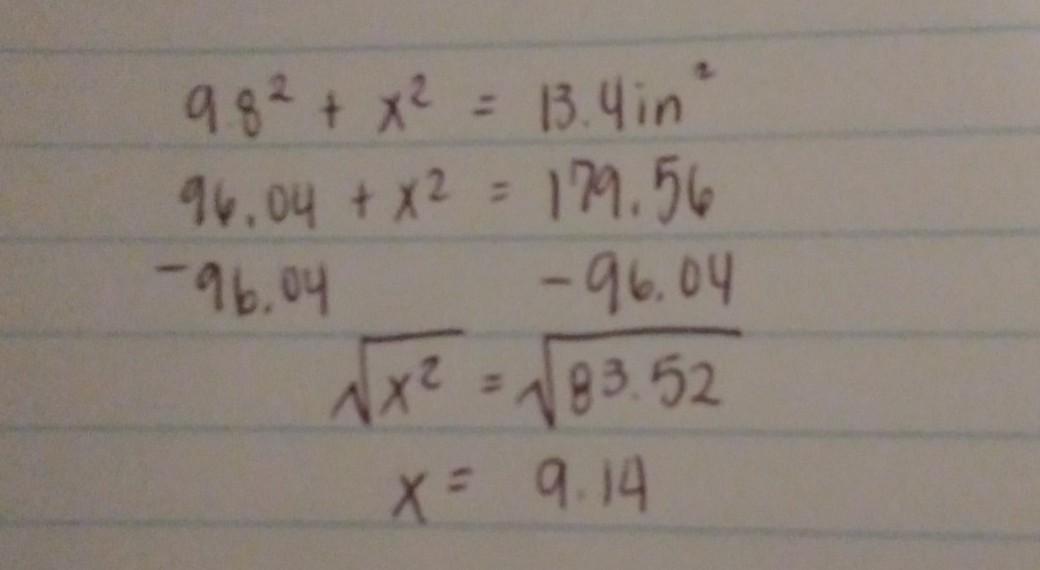 9.8² + x² = 13.4in²
96.04 + x² = 179.56
-96.04 -96.04
√x² = √83.52
x = 9.14